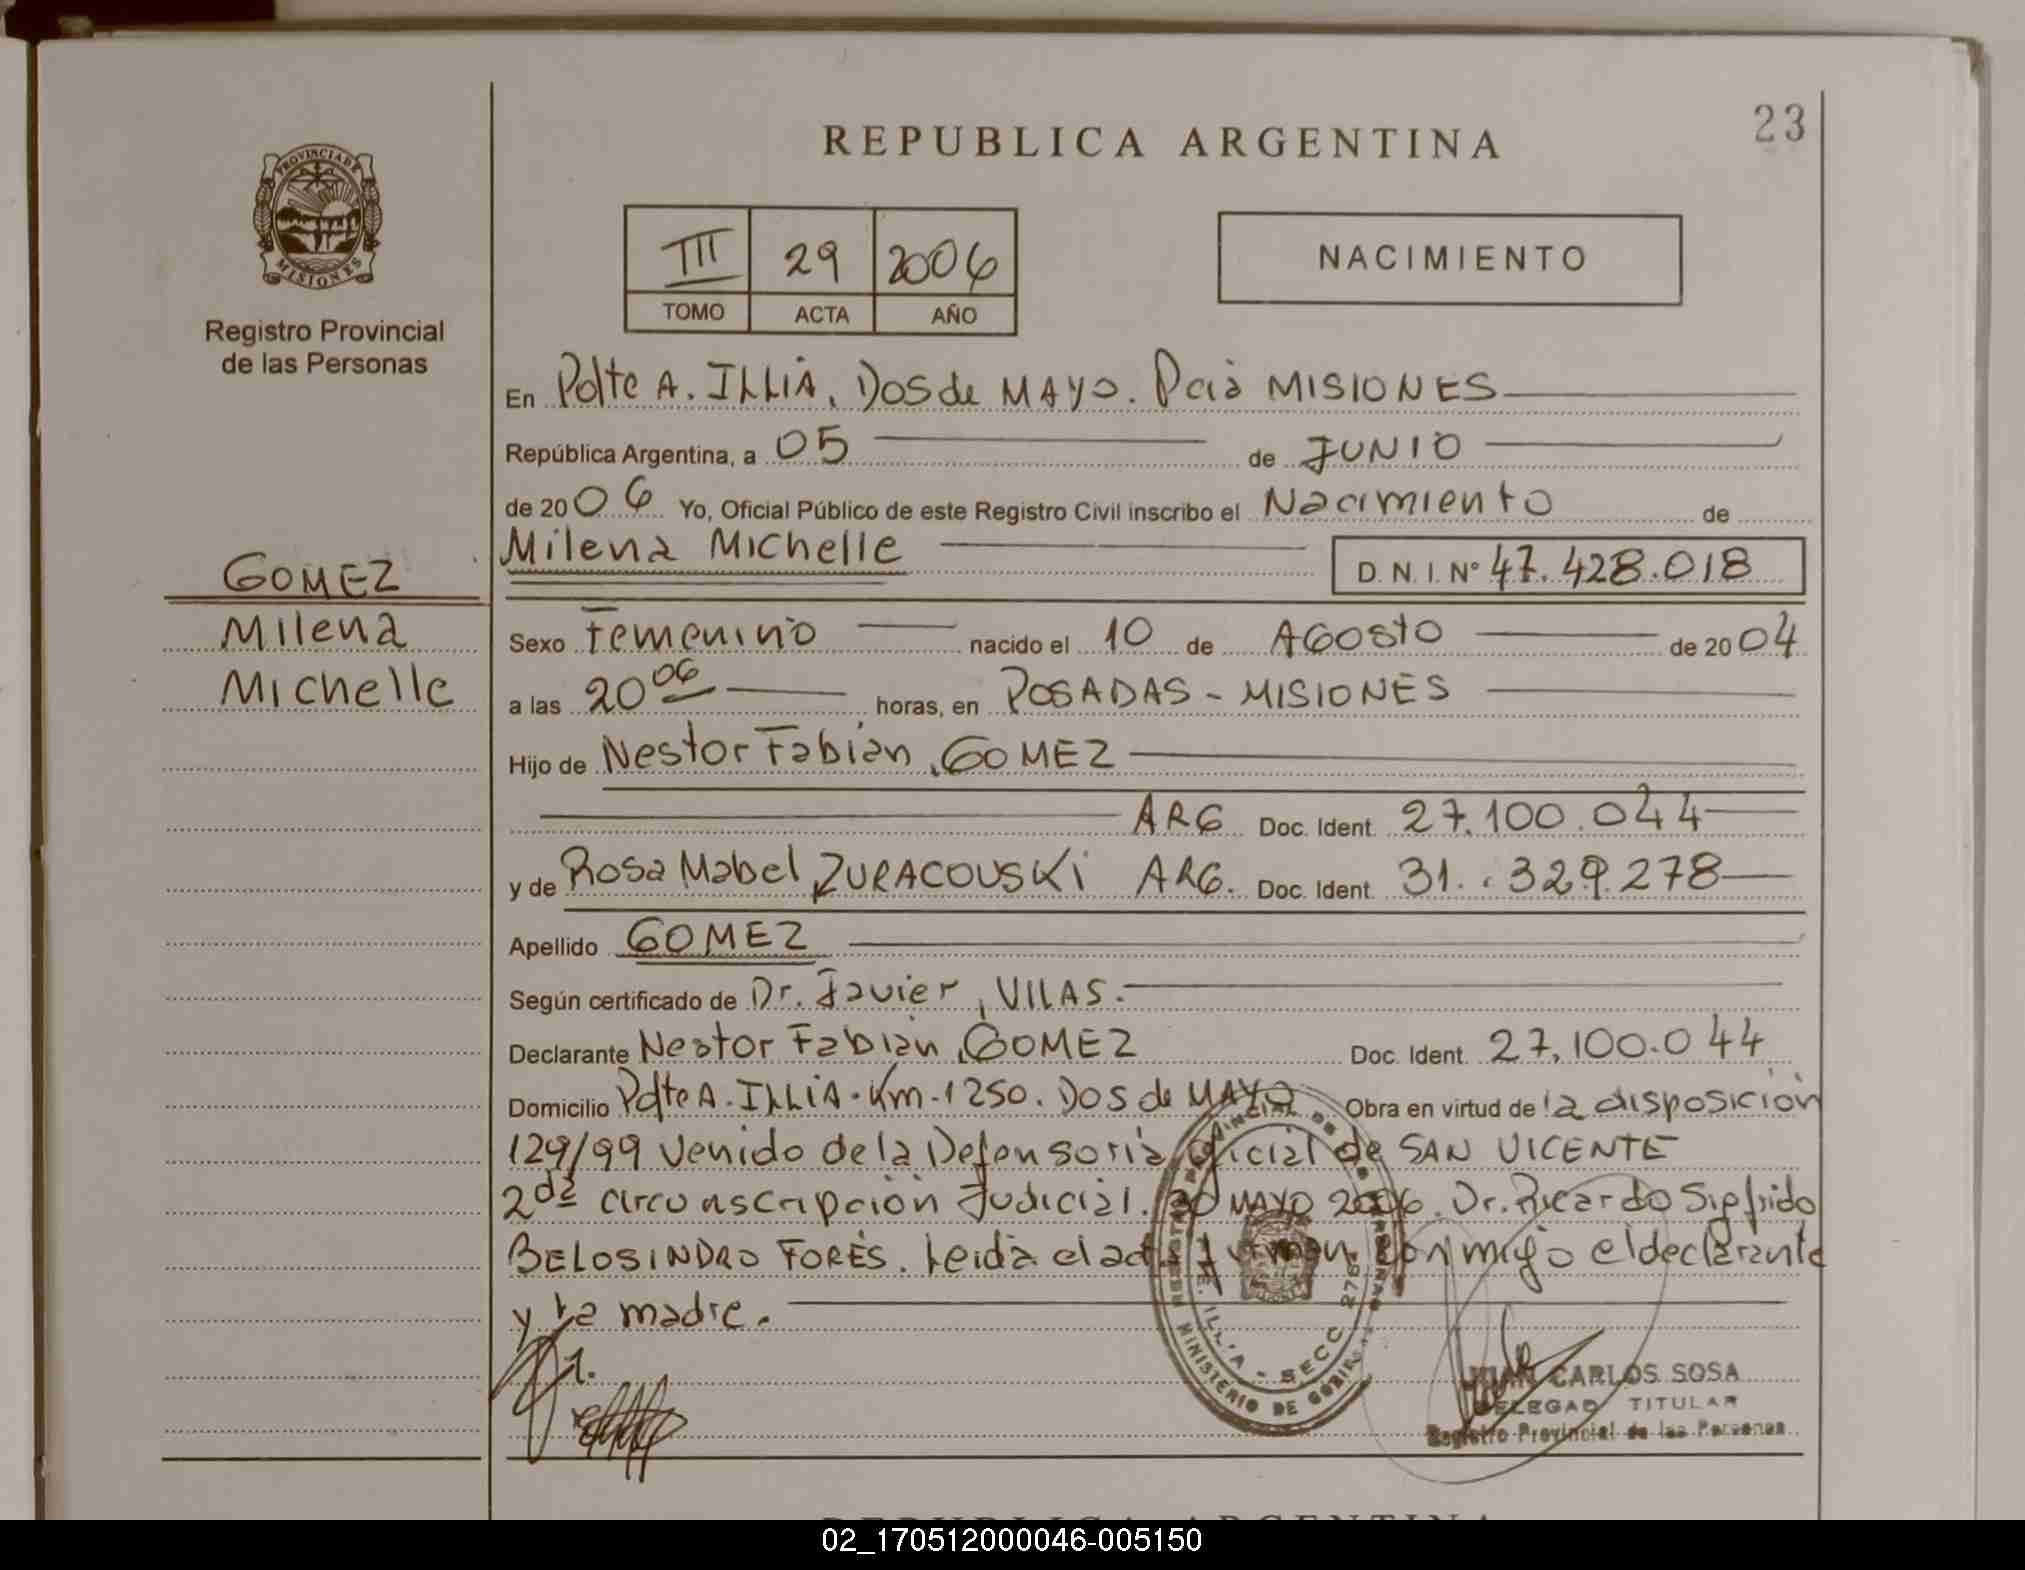 REPUBLICA ARGENTINA
23
PROVINCIA DE
MISIONES
Registro Provincial
de las Personas
III 29 2006
TOMO ACTA AÑO
NACIMIENTO
En Pdte A. ILLIA. Dos de MAYO. Pcia MISIONES
República Argentina, a 05 de JUNIO
de 2006 Yo, Oficial Público de este Registro Civil inscribo el Nacimiento de
Milena Michelle
D.N.I. Nº 47.428.018
GOMEZ
Milena
Michelle
Sexo Femenino nacido el 10 de AGOSTO de 2004
a las 20 06 horas, en POSADAS - MISIONES
Hijo de Nestor Fabian, GOMEZ
ARG Doc. Ident. 27.100.044
y de Rosa Mabel, ZURACOUSKI ARG. Doc. Ident. 31.329.278
Apellido GOMEZ
Según certificado de Dr. Javier, VILAS.
Declarante Nestor Fabian, GOMEZ Doc. Ident. 27.100.044
Domicilio Pdte A. ILLIA. Km. 1250. Dos de MAYO Obra en virtud de la disposición
129/99 venido de la Defensoria Oficial de SAN VICENTE
2da circunscripción Judicial. 30 MAYO 2006. Dr. Ricardo Sigfrido
BELOSINDRO FORÉS. Leida el acta firman conmigo el declarante
y la madre.
MINISTERIO DE
SECC 278
JUAN CARLOS SOSA
DELEGADO TITULAR
Registro Provincial de las Personas
REPUBLICA ARGENTINA
02_170512000046-005150